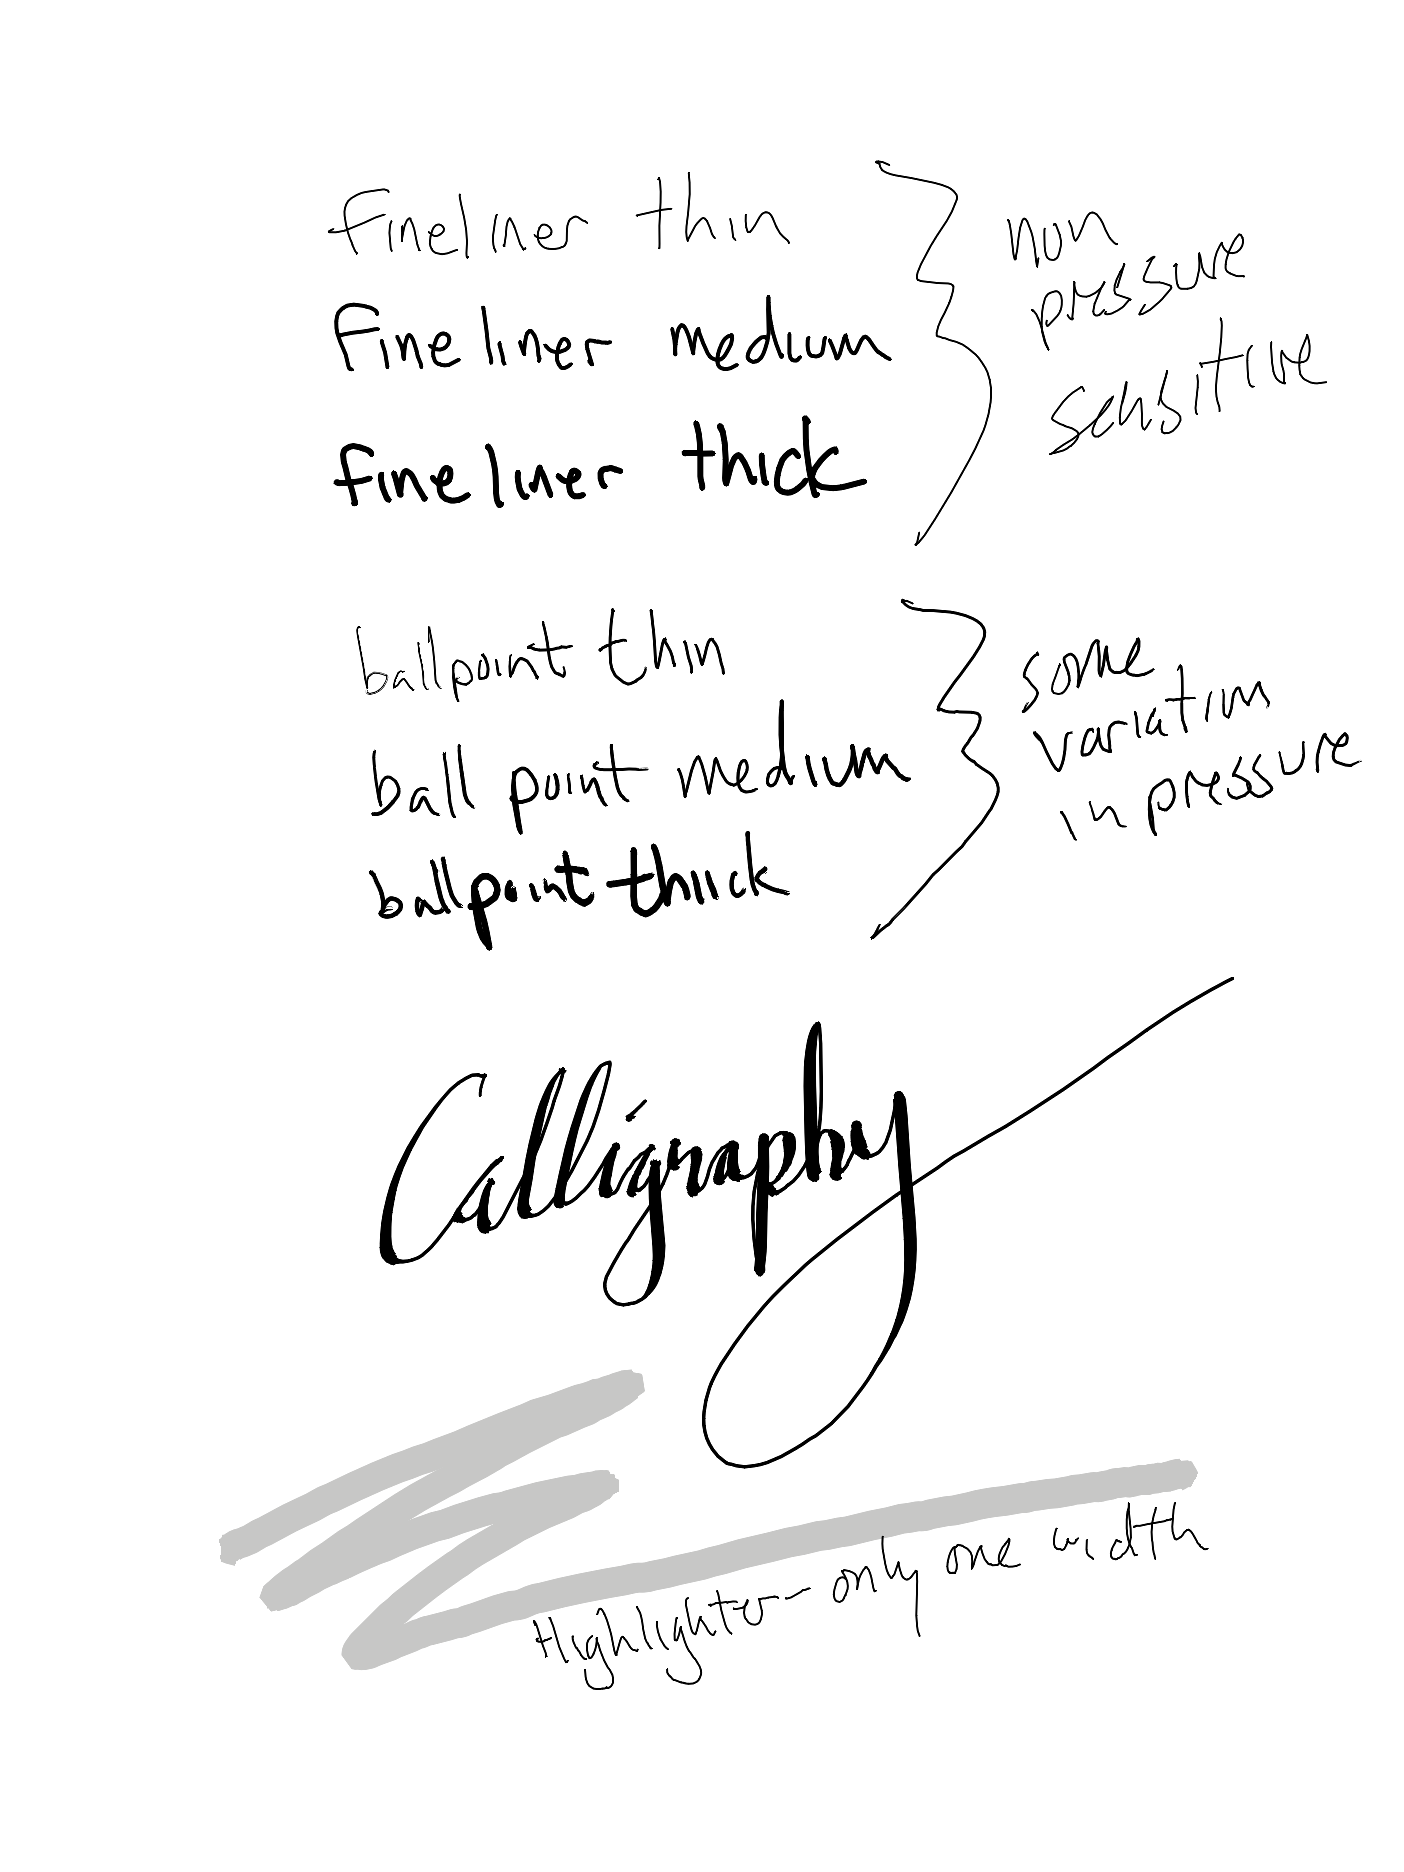 fineliner thin
fineliner medium
fineliner thick
non
pressure
sensitive
ballpoint thin
ball point medium
ballpoint thiick
some
variation
in pressure
Calligraphy
Highlighter - only one width